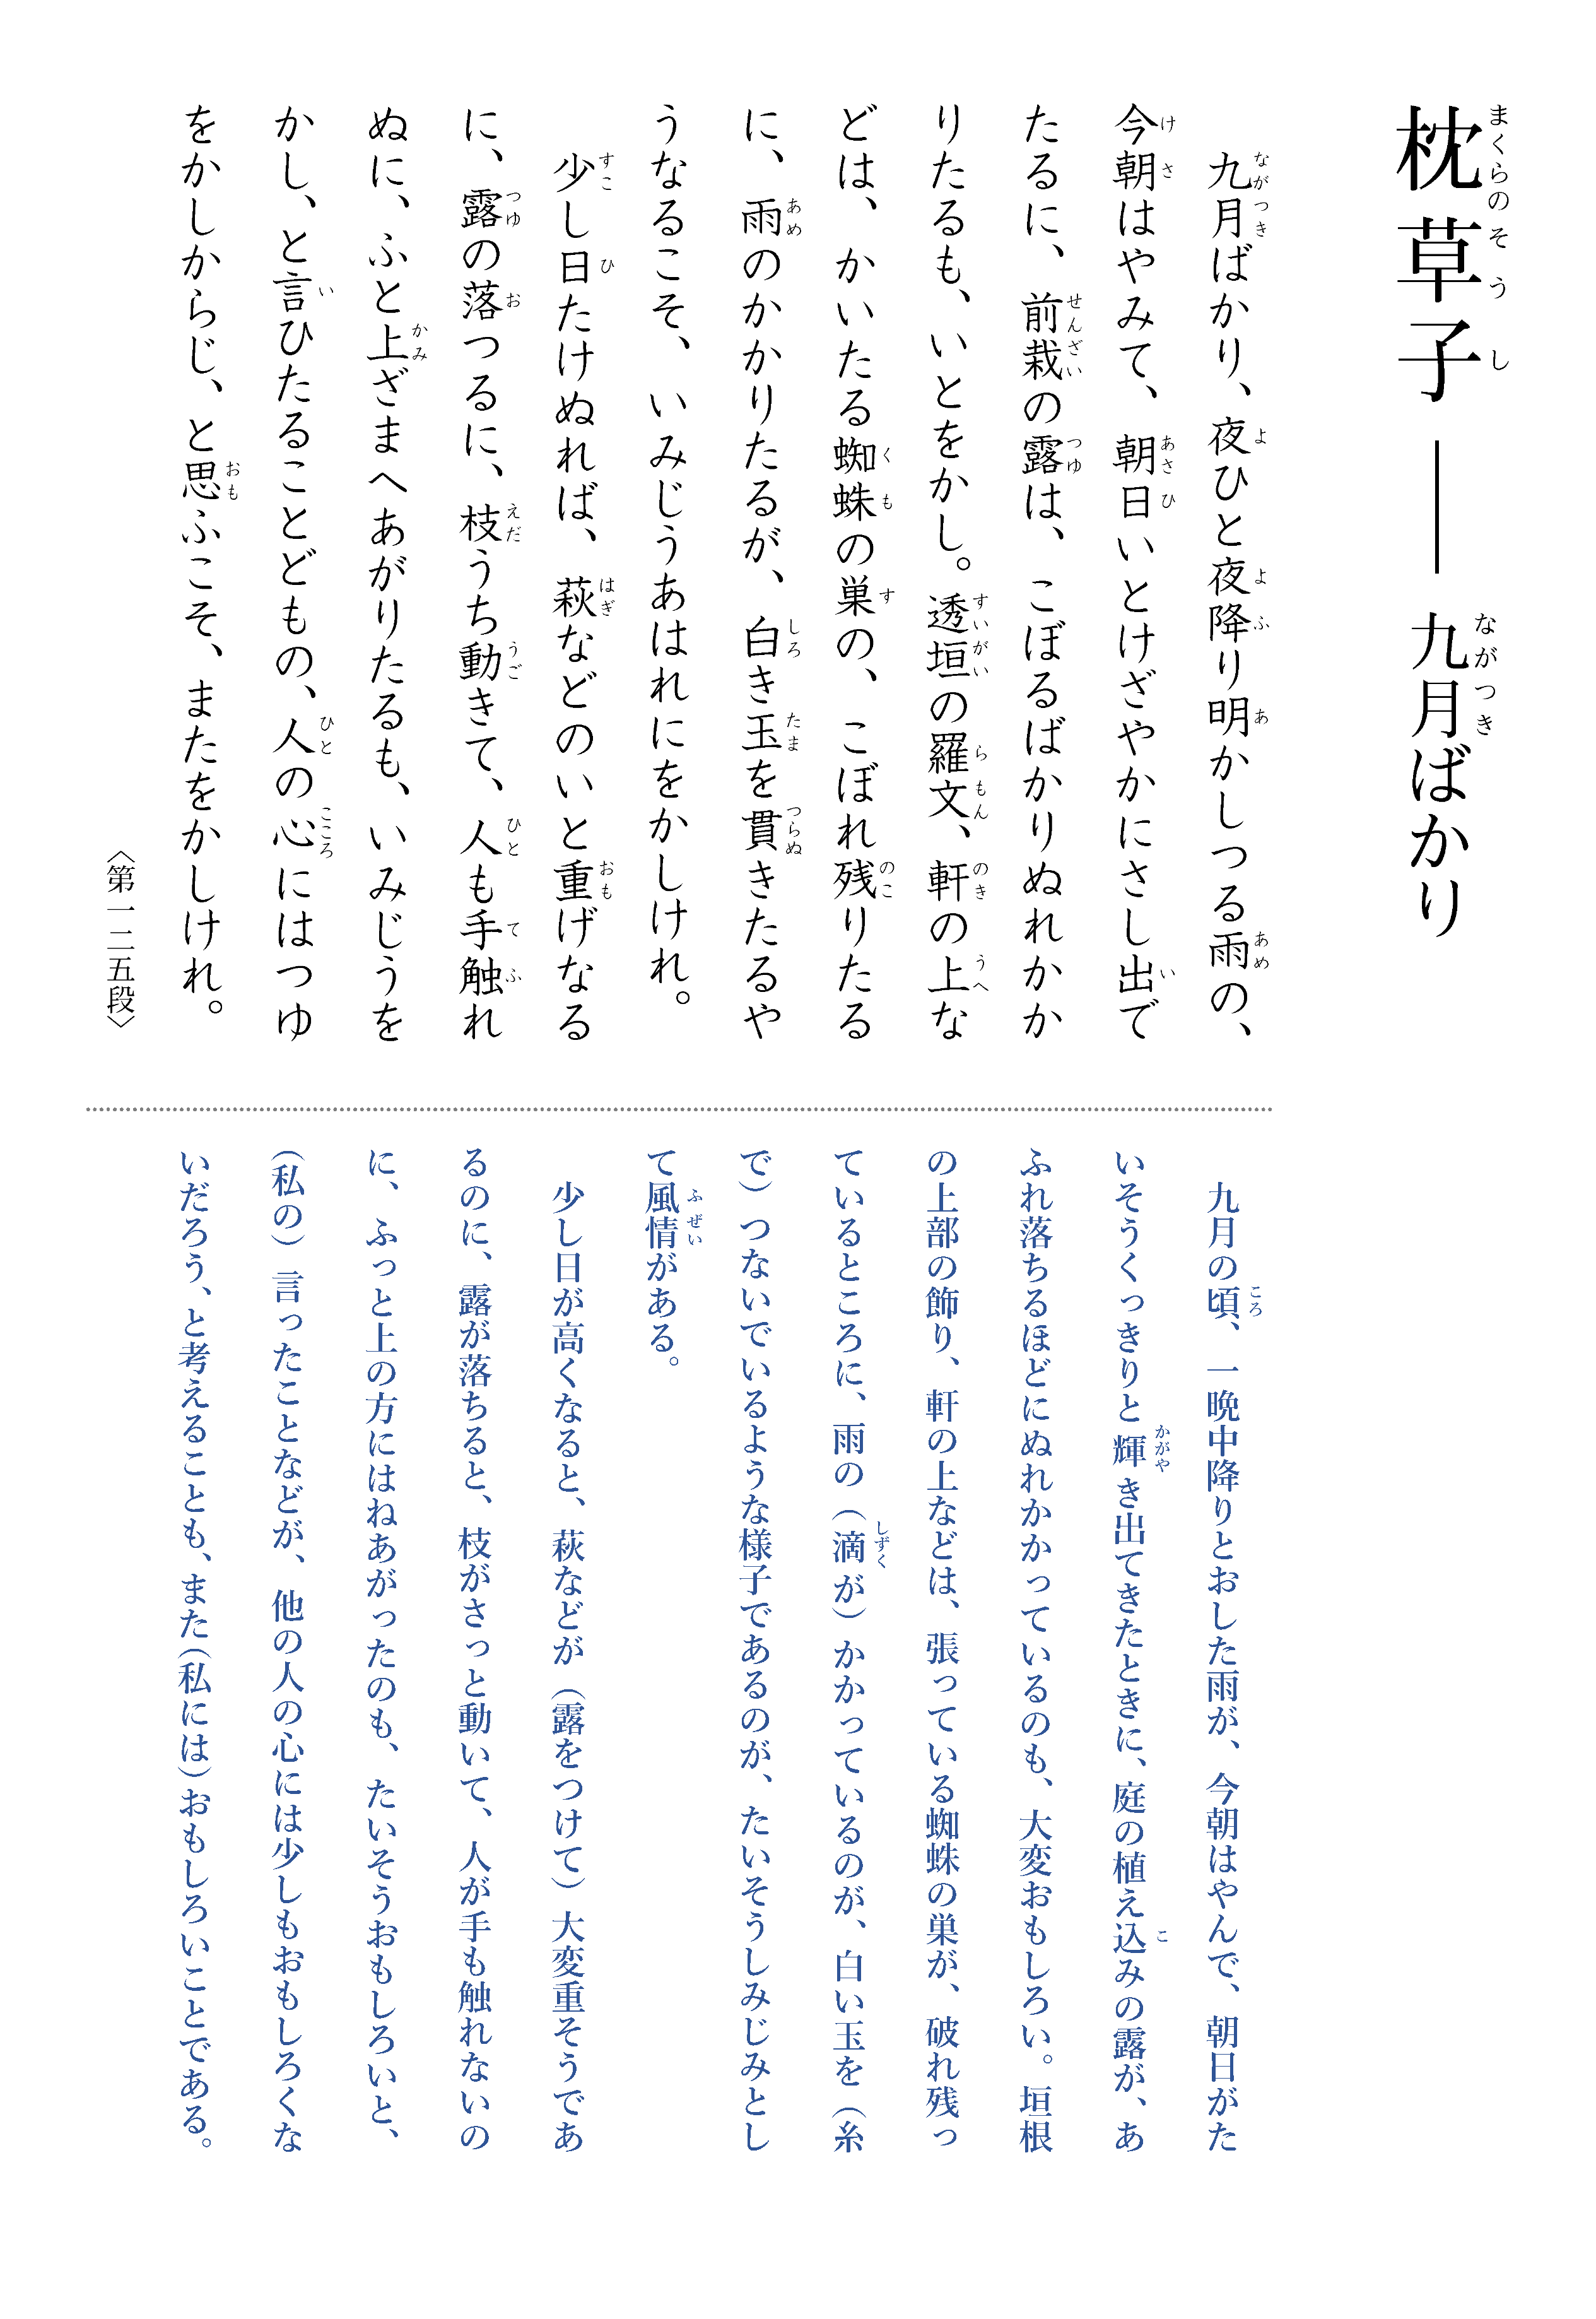 枕草子──九月ばかり
九月ばかり、夜ひと夜降り明かしつる雨の、
今朝はやみて、朝日いとけざやかにさし出で
たるに、前栽の露は、こぼるばかりぬれかか
りたるも、いとをかし。透垣の羅文、軒の上な
どは、かいたる蜘蛛の巣の、こぼれ残りたる
に、雨のかかりたるが、白き玉を貫きたるや
うなるこそ、いみじうあはれにをかしけれ。
少し日たけぬれば、萩などのいと重げなる
に、露の落つるに、枝うち動きて、人も手触れ
ぬに、ふと上ざまへあがりたるも、いみじうを
かし、と言ひたることどもの、人の心にはつゆ
をかしからじ、と思ふこそ、またをかしけれ。
〈第一二五段〉
九月の頃、一晩中降りとおした雨が、今朝はやんで、朝日がた
いそうくっきりと輝き出てきたときに、庭の植え込みの露が、あ
ふれ落ちるほどにぬれかかっているのも、大変おもしろい。垣根
の上部の飾り、軒の上などは、張っている蜘蛛の巣が、破れ残っ
ているところに、雨の（滴が）かかっているのが、白い玉を（糸
で）つないでいるような様子であるのが、たいそうしみじみとし
て風情がある。
少し日が高くなると、萩などが（露をつけて）大変重そうであ
るのに、露が落ちると、枝がさっと動いて、人が手も触れないの
に、ふっと上の方にはねあがったのも、たいそうおもしろいと、
（私の）言ったことなどが、他の人の心には少しもおもしろくな
いだろう、と考えることも、また（私には）おもしろいことである。